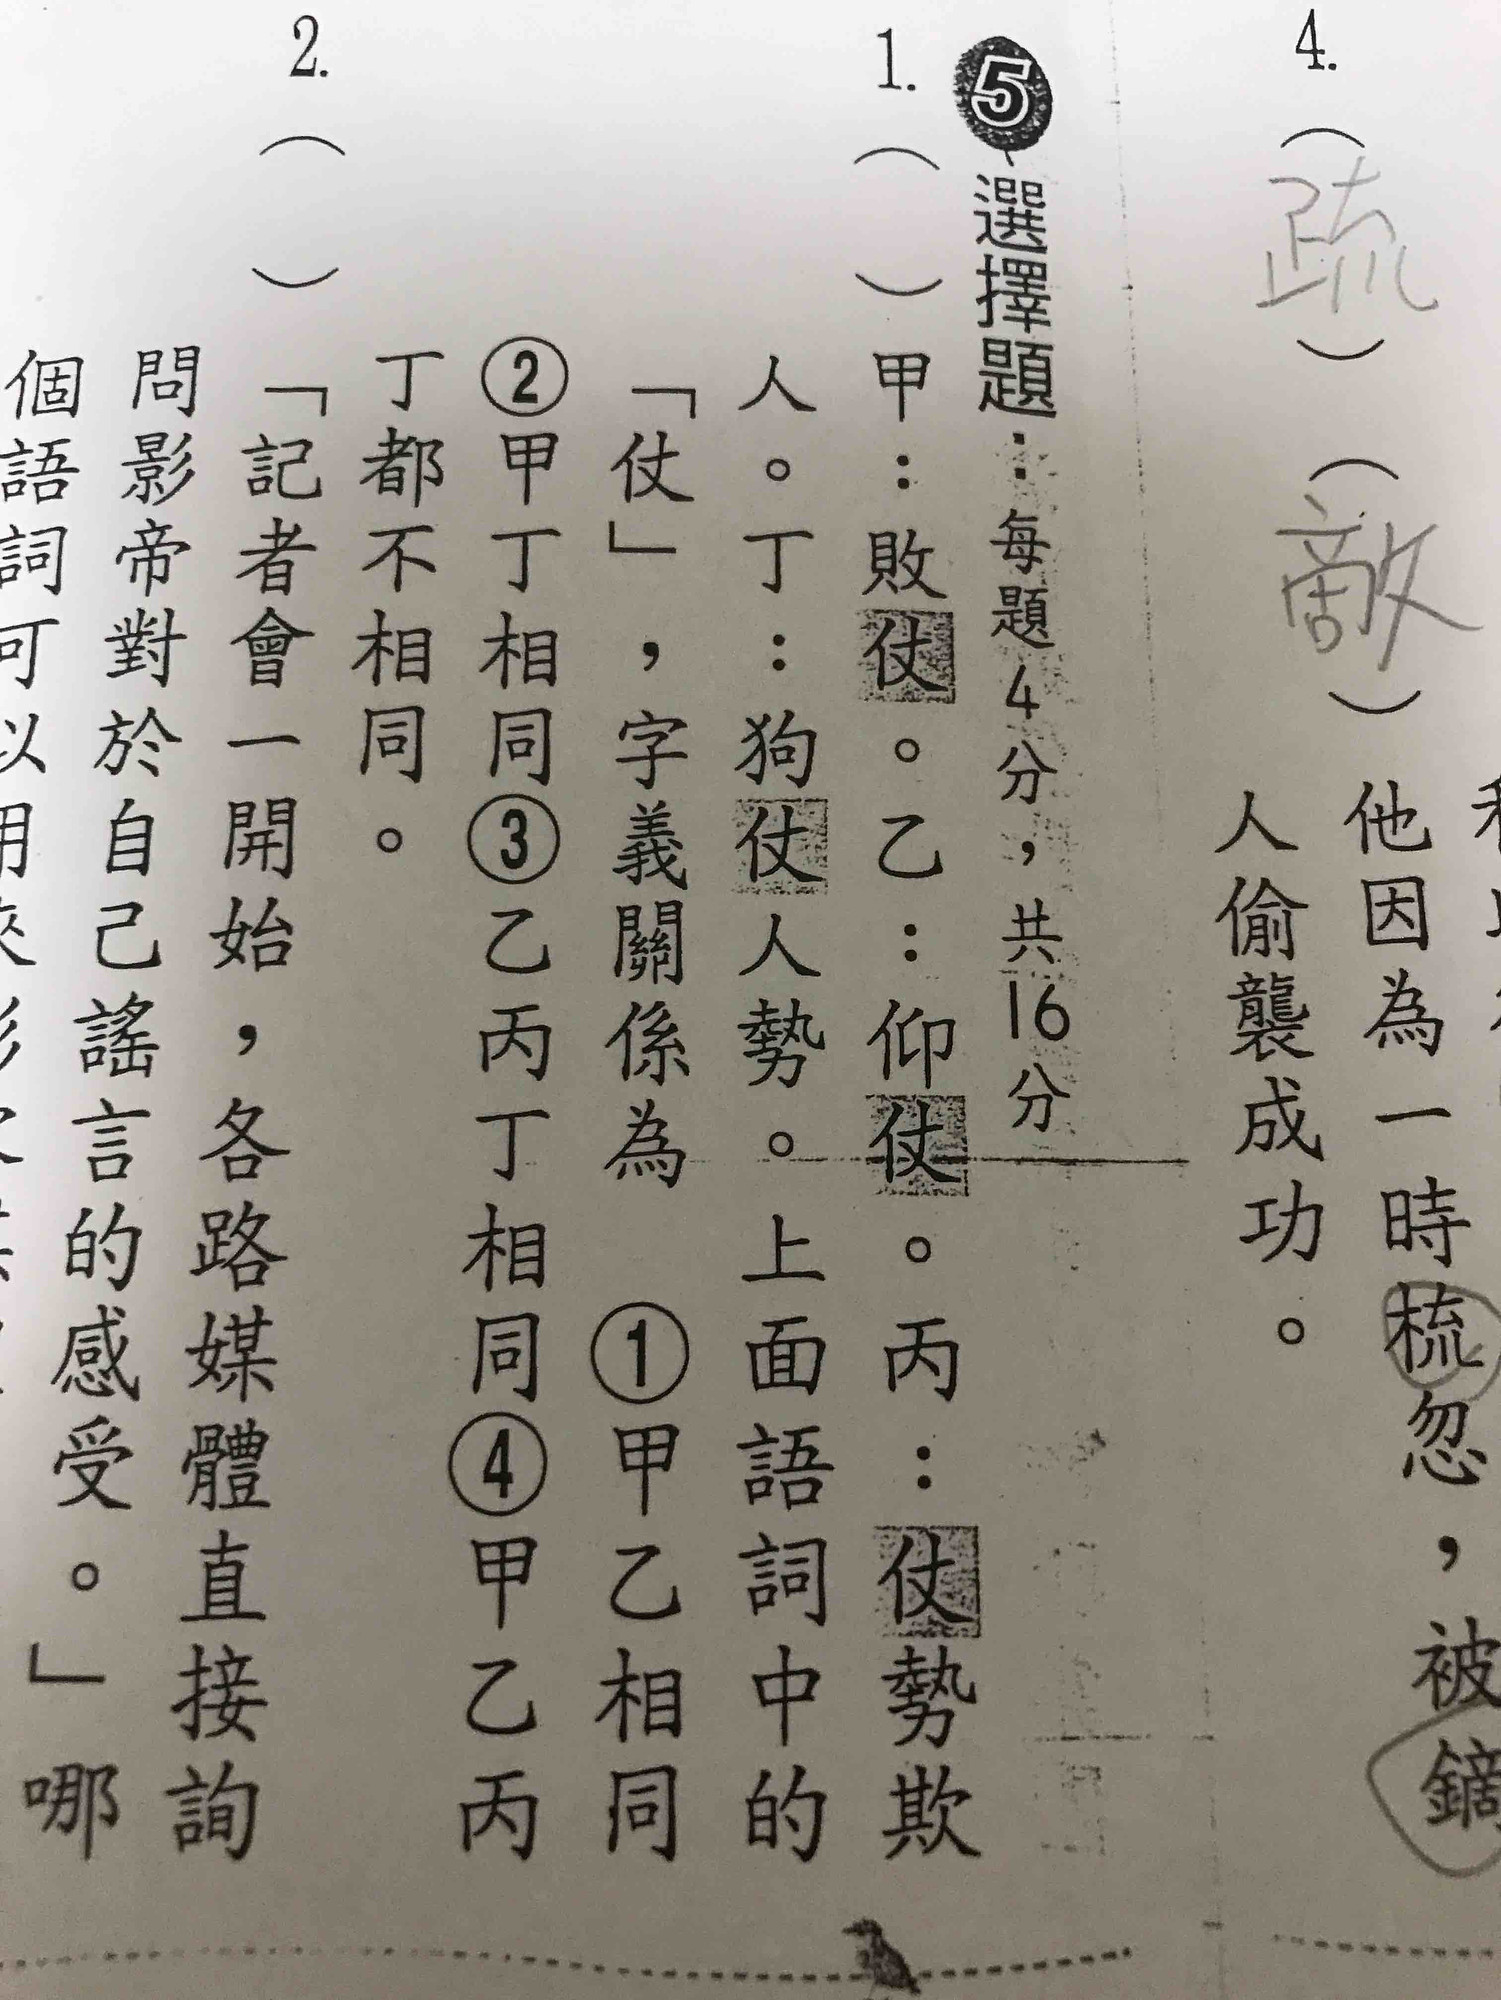 4.（疏）（敵）他因為一時梳忽，被鏑
人偷襲成功。
5、選擇題：每題4分，共16分
1.（ ）甲：敗仗。乙：仰仗。丙：仗勢欺
人。丁：狗仗人勢。上面語詞中的
「仗」，字義關係為 ①甲乙相同
②甲丁相同③乙丙丁相同④甲乙丙
丁都不相同。
2.（ ）「記者會一開始，各路媒體直接詢
問影帝對於自己謠言的感受。」哪
個語詞可以用來形容